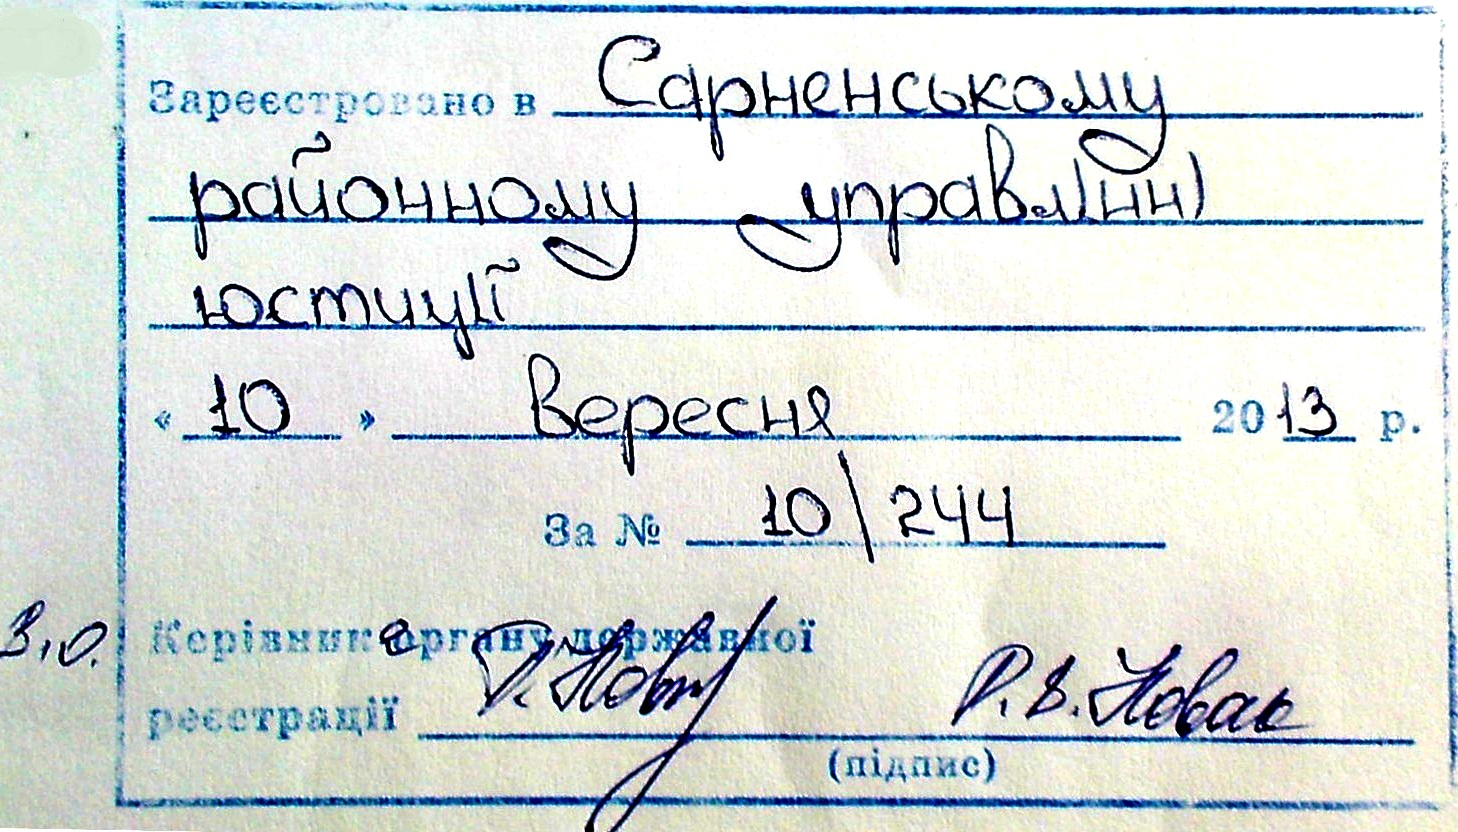 Зареєстровано в Сарненському
районному управлінні
юстиції
« 10 » вересня 2013 р.
За № 10/244
З.о. Керівника органу державної
реєстрації Р.В. Новак
(підпис)